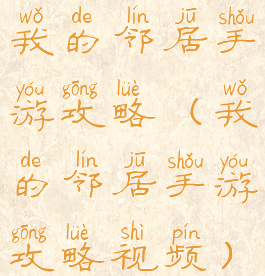 wǒ de lín jū shǒu
我的邻居手
yóu gōng lüè wǒ
游攻略（我
de lín jū shǒu yóu
的邻居手游
gōng lüè shì pín
攻略视频）